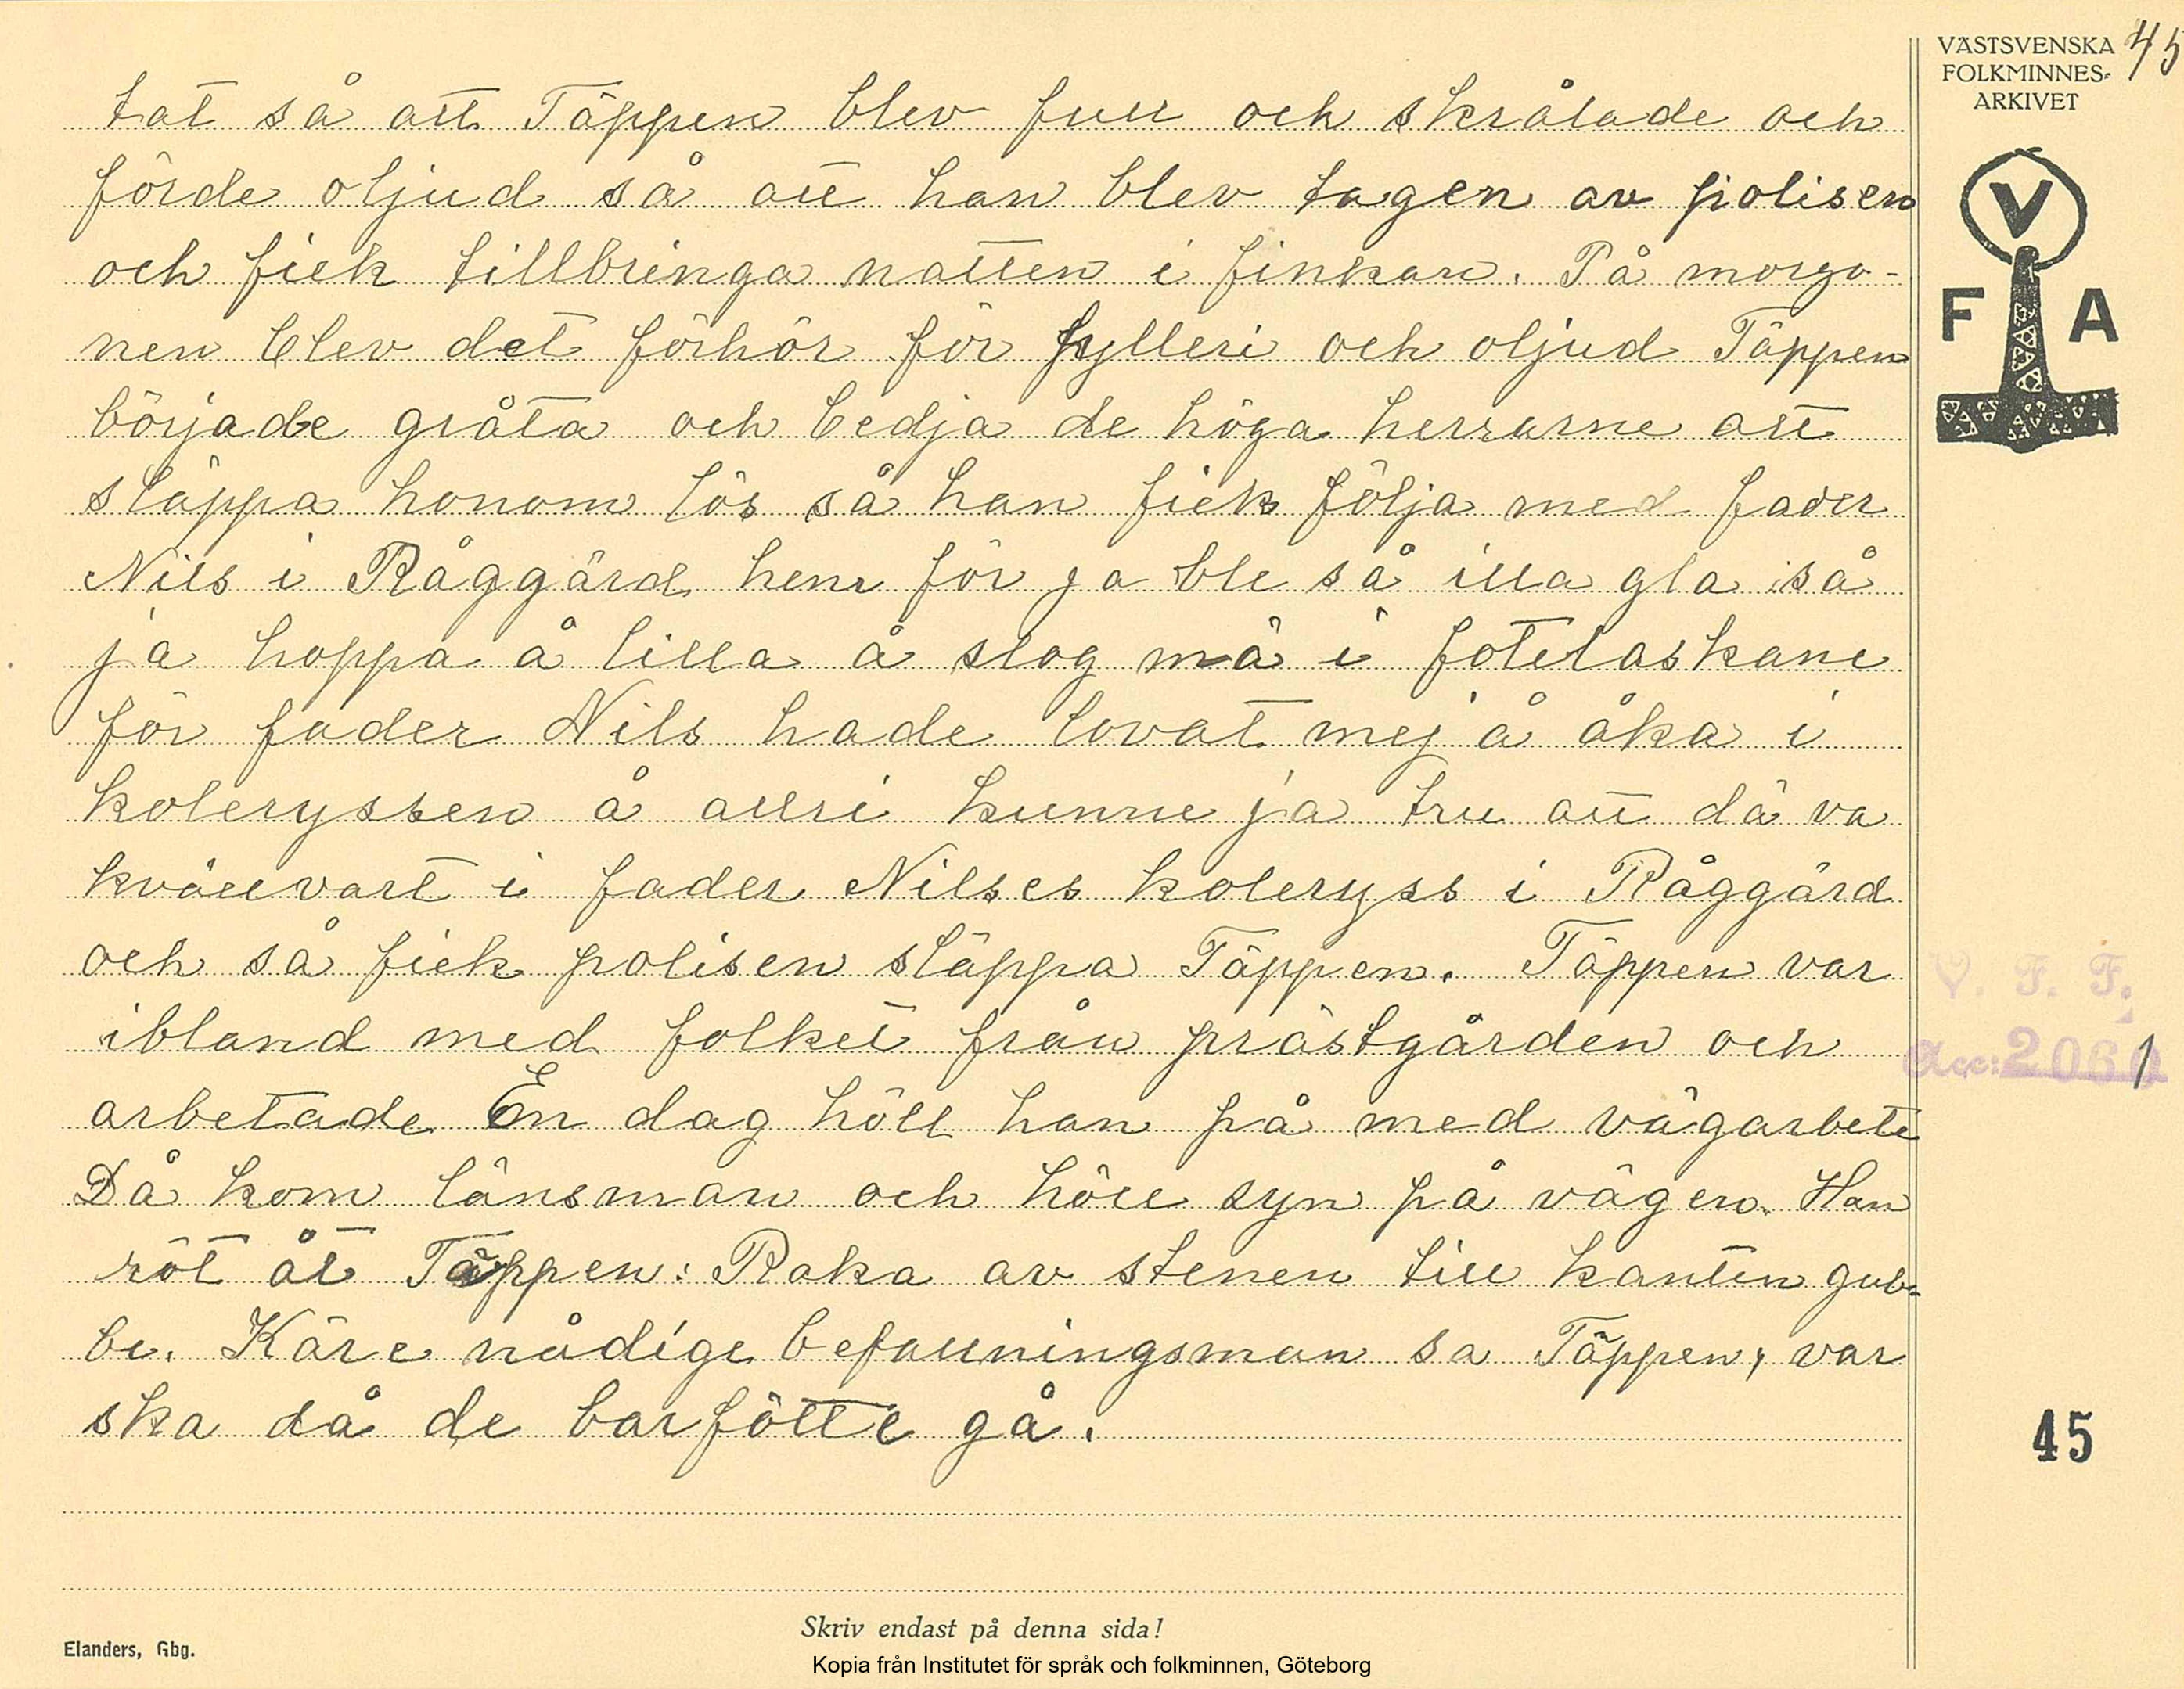 VÄSTSVENSKA
FOLKMINNES-
ARKIVET
45
V
F A
tat så att Täppen blev full och skrålade och
förde oljud så att han blev tagen av polisen
och fick tillbringa natten i finkan. På morgo-
nen blev det förhör för fylleri och oljud Täppen
började gråta och bedja de höga herrarne att
släppa honom lös så han fick följa med fader
Nils i Råggärd hem för ja ble så illa gla så
ja hoppa å lilla å slog mä i fotelaskane
för fader Nils hade lovat mej å åka i
koleryssen å allri kunne ja tru att dä va
kvällvart i fader Nilses koleryss i Råggärd
och så fick polisen släppa Täppen. Täppen var
ibland med folket från prästgården och
arbetade En dag höll han på med vägarbete
Då kom länsman och höll syn på vägen. Han
röt åt Täppen: Raka av stenen till kanten gub-
be. Käre nådige befallningsman sa Täppen, var
ska då de barfötte gå.
V. F. F.
Acc: 2060
1
45
Skriv endast på denna sida!
Elanders, Gbg.
Kopia från Institutet för språk och folkminnen, Göteborg